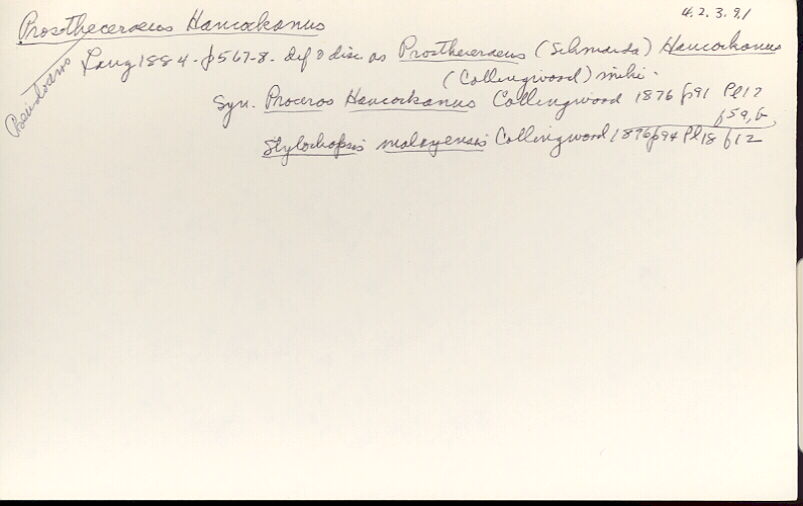 4.2.3.91
Prostheceraeus Hancockanus
Pseudoceros
Lang 1884 - p567-8. def & disc as Prostheceraeus (Schmarda) Hancockanus
(Collingwood) mihi.
Syn. Proceros Hancockanus Collingwood 1876 p91 Pl17
f5a,b.
Stylochopsis malayensis Collingwood 1876 p94 Pl18 f12